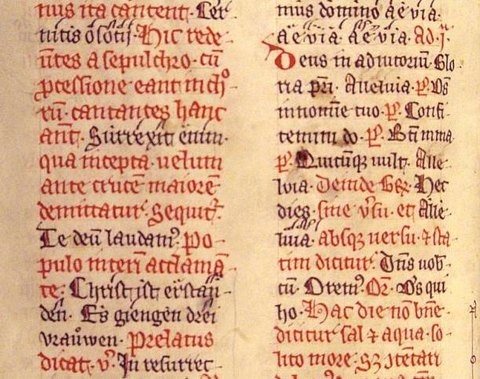 nus ita cantent. Cer
Hic rede
untes a sepulchro. cū
ꝓcessione eant in choͬ
rū. cantantes hanc
antͭ. Surrexit enim.
qua incepta. uelum
ante crucem maiorē
demittatur. Sequitͬ.
Te deū laudamꝰ. Po
pulo interī acclamā
te. Christ ist erstan
den. Es giengen drei
vrauwen. Prelatus
dicat. v̊. In resurrec
mus domino. aevia.
aevia. aevia. Ad j.
Deus in adiutorium. Glo
ria pr̄i. Alleluia. p̄. Ds̄
in nomine tuo. p̄. Confi
temini do. p̄. Btī imma
p̄. Quicūque uult. Alle
lvia. Deinde Hec
dies. sine ỻsu. et Alle
luia. absque uersu. & sta
tim dicitur. Dn̄s uob̄
cū. Oremꝰ. Or̄. Ds̄ qui
ho. Hac die no b̄ne
dicitur sal & aqua. so
lito more.